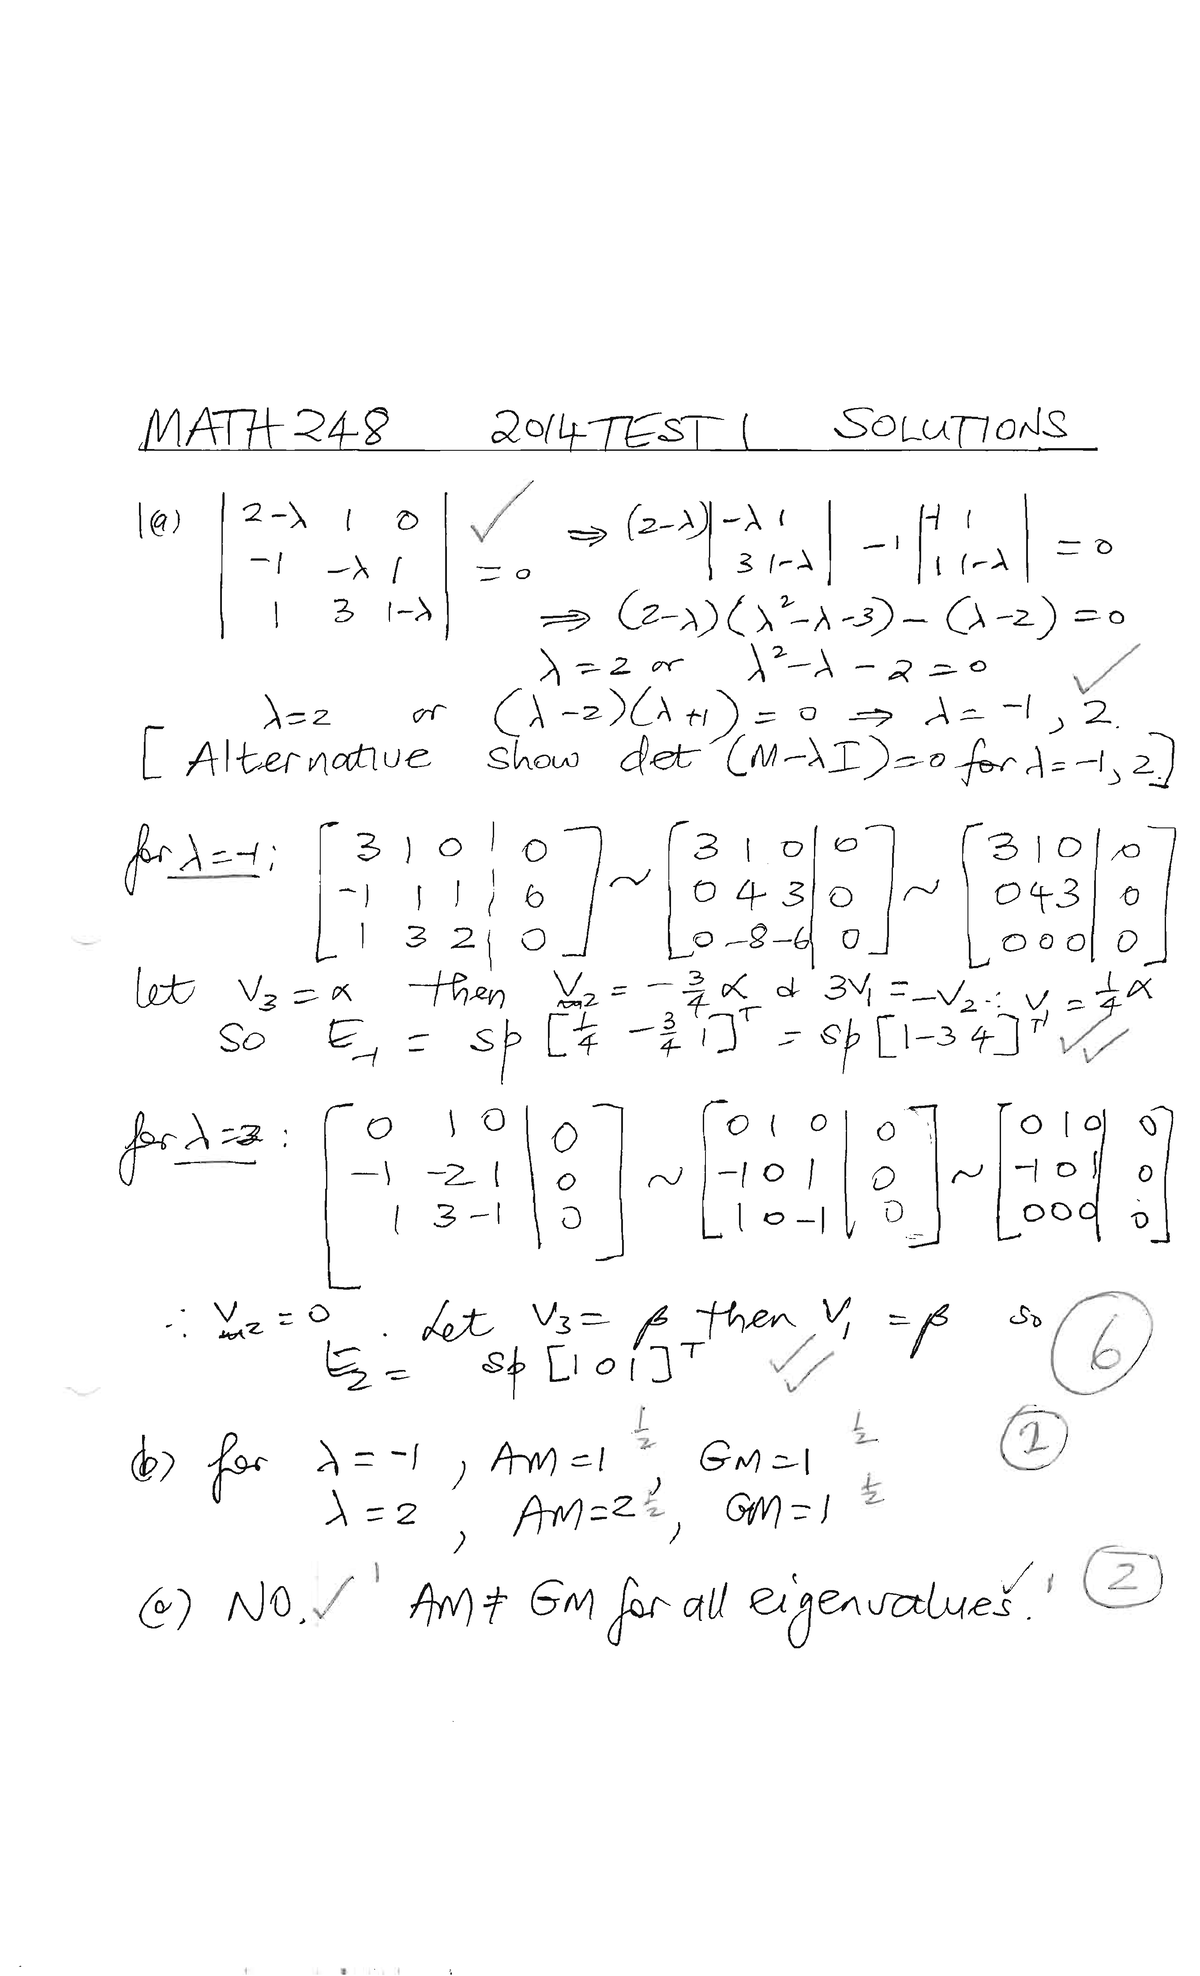 MATH 248 2014 TEST 1 SOLUTIONS
1(a) | 2-λ 1 0 | ✓ ⇒ (2-λ) | -λ 1 | - 1 | -1 1 | = 0
| -1 -λ 1 | = 0 | 3 1-λ | | 1 1-λ |
| 1 3 1-λ | ⇒ (2-λ)(λ²-λ-3) - (λ-2) = 0
λ = 2 or λ²-λ-2 = 0 ✓
λ=2 or (λ-2)(λ+1) = 0 ⇒ λ = -1, 2.
[ Alternative show det (M-λI)=0 for λ=-1, 2.]
for λ=-1: [ 3 1 0 | 0 ] ~ [ 3 1 0 | 0 ] ~ [ 3 1 0 | 0 ]
[ -1 1 1 | 0 ] [ 0 4 3 | 0 ] [ 0 4 3 | 0 ]
[ 1 3 2 | 0 ] [ 0 -8 -6 | 0 ] [ 0 0 0 | 0 ]
let V₃ = α then V₂ = -3/4 α & 3V₁ = -V₂ ∴ V₁ = 1/4 α
So E₋₁ = sp [1/4 -3/4 1]ᵀ = sp [1 -3 4]ᵀ ✓✓
for λ=2: [ 0 1 0 | 0 ] ~ [ 0 1 0 | 0 ] ~ [ 0 1 0 | 0 ]
[ -1 -2 1 | 0 ] [ -1 0 1 | 0 ] [ -1 0 1 | 0 ]
[ 1 3 -1 | 0 ] [ 1 0 -1 | 0 ] [ 0 0 0 | 0 ]
∴ V₂ = 0. Let V₃ = β then V₁ = β so 6
E₂ = sp [1 0 1]ᵀ ✓✓
(b) for λ = -1, AM = 1 ½, GM = 1 ½ 2
λ = 2, AM = 2 ½, GM = 1 ½
(c) NO. ✓ 1 AM ≠ GM for all eigenvalues. ✓ 1 2